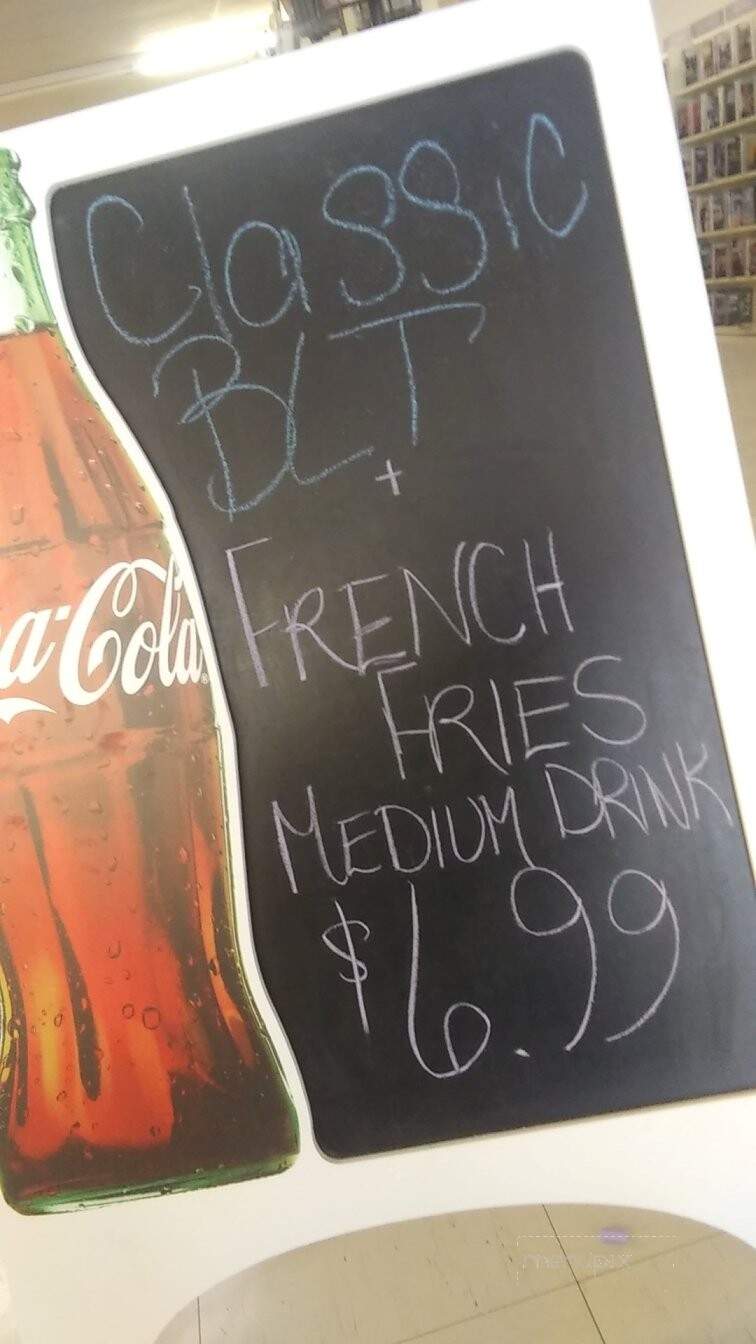 Classic
BLT
+
FRENCH
FRIES
MEDIUM DRINK
$6.99
a-Cola®
menupix